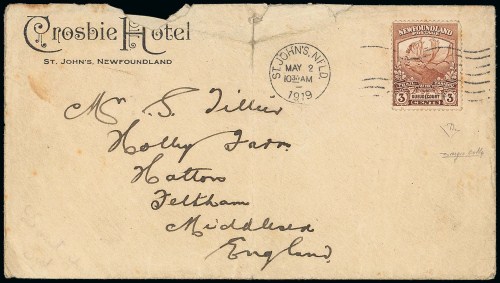 Crosbie Hotel
ST. JOHN'S, NEWFOUNDLAND
ST. JOHN'S, NFLD.
MAY 2
10 30 AM
1919
NEWFOUNDLAND
GUEUDECOURT
3 CENTS 3
Mr. S. Tillier
Holly Farm
Hatton
Feltham
Middlesex
England.